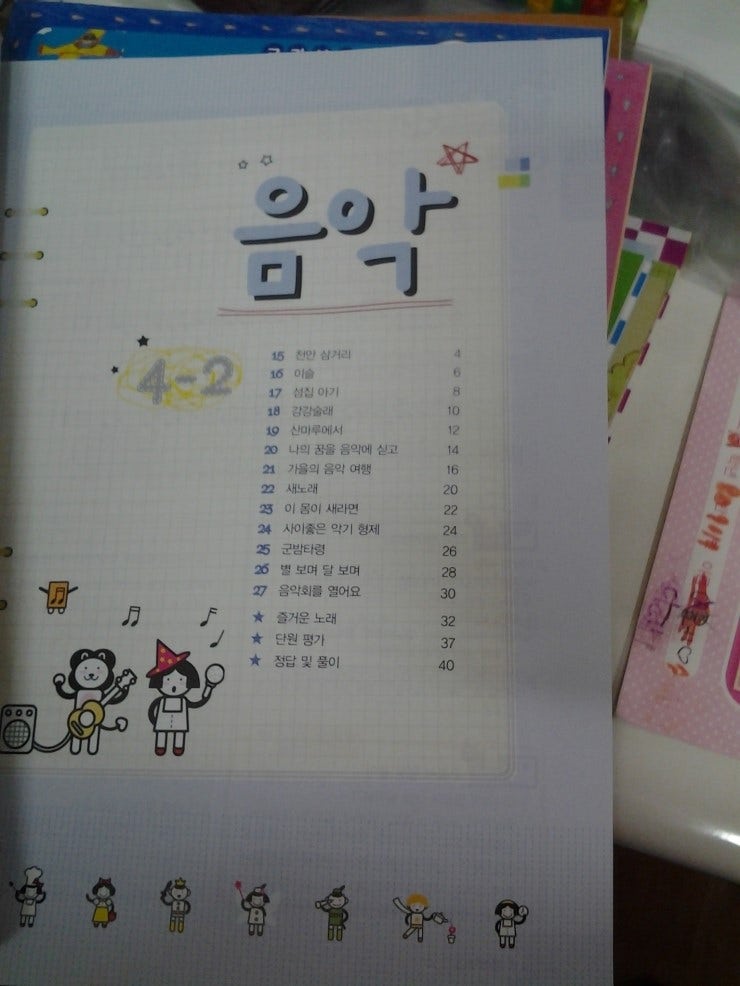 음악
4-2
15 천안 삼거리 4
16 이슬 6
17 섬집 아기 8
18 강강술래 10
19 산마루에서 12
20 나의 꿈을 음악에 싣고 14
21 가을의 음악 여행 16
22 새노래 20
23 이 몸이 새라면 22
24 사이좋은 악기 형제 24
25 군밤타령 26
26 별 보며 달 보며 28
27 음악회를 열어요 30
★ 즐거운 노래 32
★ 단원 평가 37
★ 정답 및 풀이 40